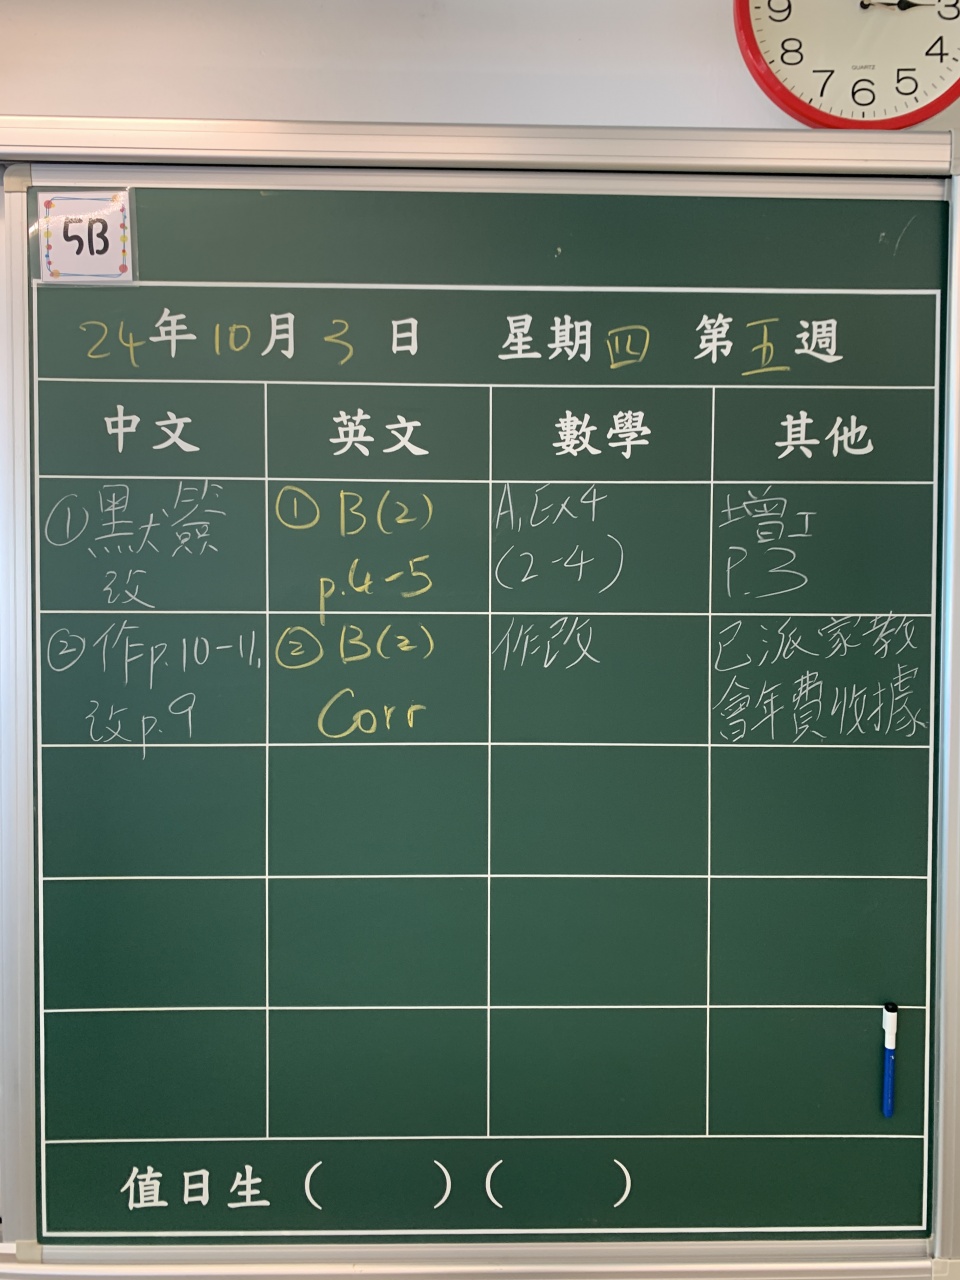 9 3
8 4
QUARTZ
7 6 5
5B
24年10月3日 星期四 第五週
中文 英文 數學 其他
①默簽
改
①B(2)
p.4-5
A,Ex4
(2-4)
增工
P.3
②作p.10-11,
改p.9
②B(2)
Corr
作改
已派家教
會年費收據
值日生 ( ) ( )